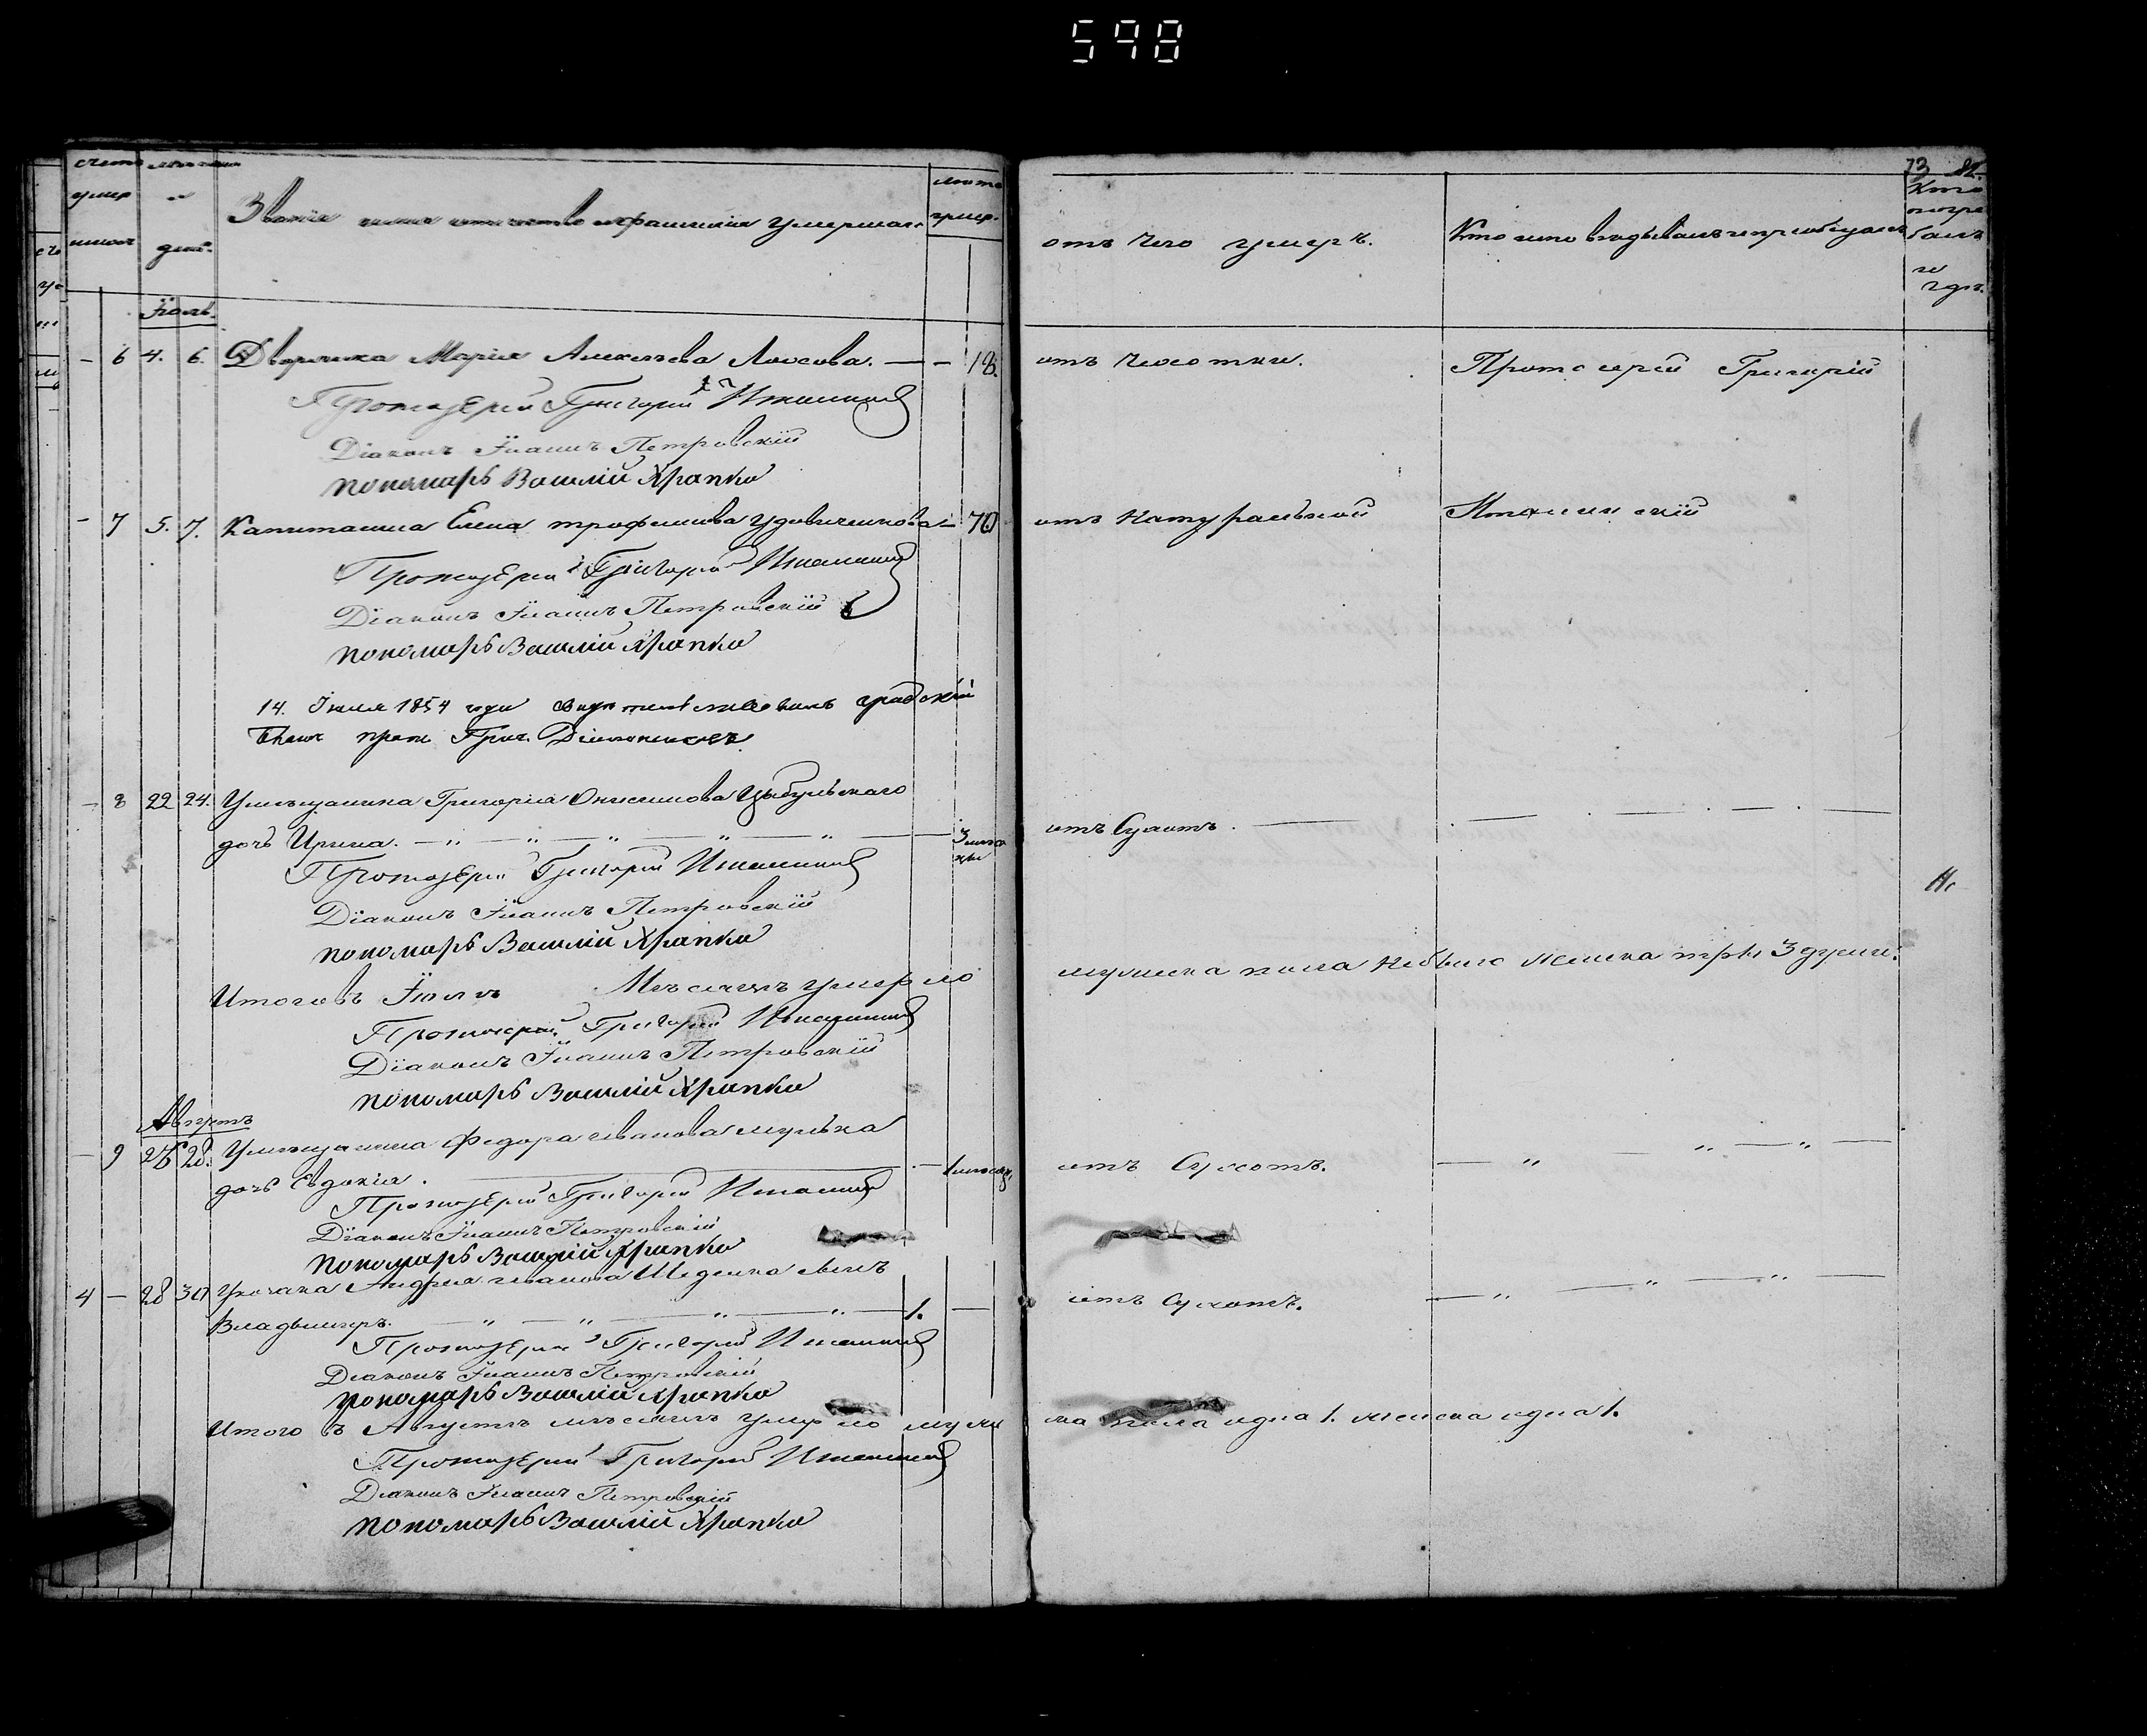 598
73 82.
Счетъ умер шихъ
Мѣсяцъ и дни.
Званіе имя отчество и фамилія умершаго
лѣта умер.
отъ чего умеръ.
Кто исповѣдывалъ и пріобщалъ
Кто погре балъ и гдѣ.
Іюль.
- 6 4. 6. Дворянка Марія Алексѣева Лосова. — - 18. отъ чесотки. Протоіерей Григорій
Протоіерей Григорій
Діаконъ Іоаннъ Петровскій
пономарь Василій Храпко
- 7 5. 7. Капитанша Елена Трофимова Удовиченкова - 70 отъ натуральной
Протоіерей Григорій
Діаконъ Іоаннъ Петровскій
пономарь Василій Храпко
14. Іюля 1854 года свидетельствовалъ градскій
благ. прот. Григ.
- 8 22 24. Умѣщанина Григорія Онисимова Цыбульскаго
дочь Ирина. 3 мѣся цы отъ Сухотъ.
Протоіерей Григорій
Діаконъ Іоаннъ Петровскій
пономарь Василій Храпко
Итого въ Іюлѣ Мѣсяцѣ умерло мужеска пола небыло женска три 3 души.
Протоіерей Григорій
Діаконъ Іоаннъ Петровскій
пономарь Василій Храпко
Августъ
- 9 26 28. Умѣщанина Федора Иванова Мулька
дочь Евдокія. — 1 мѣсяц. отъ Сухотъ.
Протоіерей Григорій
Діаконъ Іоаннъ Петровскій
пономарь Василій Храпко
4 - 28 30 Укозака Андрея Иванова Шеденка сынъ
Владымиръ. 1. — отъ Сухотъ.
Протоіерей Григорій
Діаконъ Іоаннъ Петровскій
пономарь Василій Храпко
Итого въ Августѣ мѣсяцѣ умерло мужеска пола одна 1. женска одна 1.
Протоіерей Григорій
Діаконъ Іоаннъ Петровскій
пономарь Василій Храпко